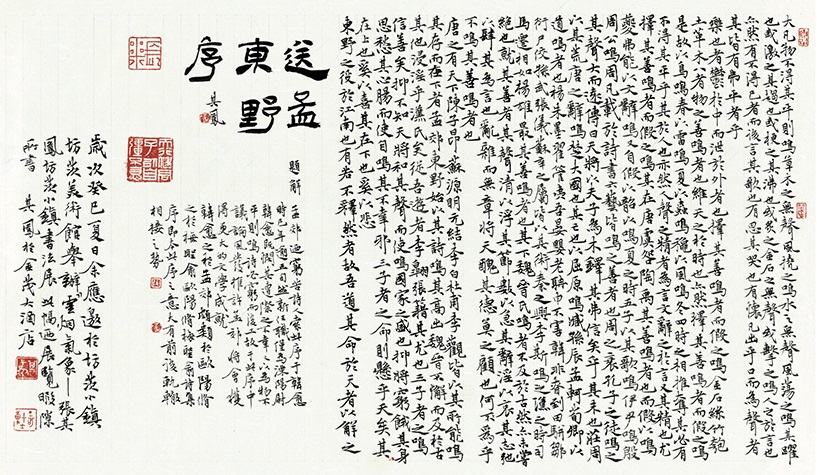 大凡物不得其平則鳴草木之無聲風撓之鳴水之無聲風蕩之鳴其躍
也或激之其趨也或梗之其沸也或炙之金石之無聲或擊之鳴人之於言也
亦然有不得已者而後言其歌也有思其哭也有懷凡出乎口而為聲者
其皆有弗平者乎
樂也者鬱於中而泄於外者也擇其善鳴者而假之鳴金石絲竹匏
土革木者物之善鳴者也維天之於時也亦然擇其善鳴者而假之鳴
是故以鳥鳴春以雷鳴夏以蟲鳴秋以風鳴冬四時之相推奪其必有
不得其平乎其於人也亦然人聲之精者為言文辭之於言又其精也尤
擇其善鳴者而假之鳴其在唐虞咎陶禹其善鳴者也而假以鳴
夔弗能以文辭鳴又自假於韶以鳴夏之時五子以其歌鳴伊尹鳴殷
周公鳴周凡載於詩書六藝皆鳴之善者也周之衰孔子之徒鳴之
其聲大而遠傳曰天將以夫子為木鐸其弗信矣乎其末也莊周
以其荒唐之辭鳴楚大國也其亡也以屈原鳴臧孫辰孟軻荀卿以
道鳴者也楊朱墨翟管夷吾晏嬰老聃申不害韓非眘到田駢鄒
衍尸佼孫武張儀蘇秦之屬皆以其術鳴秦之興李斯鳴之漢之時司
馬遷相如楊雄最其善鳴者也其下魏晉氏鳴者不及於古然亦未嘗
絕也就其善者其聲清以浮其節數以急其辭淫以哀其志弛
以肆其為言也亂雜而無章將天醜其德莫之顧也何為乎
不鳴其善鳴者也
唐之有天下陳子昂蘇源明元結李白杜甫李觀皆以其所能鳴
其存而在下者孟郊東野始以其詩鳴其高出魏晉不懈而及於古
其他浸淫乎漢氏矣從吾遊者李翱張籍其尤也三子者之鳴
信善矣抑不知天將和其聲而使鳴國家之盛也抑將窮餓其身
思愁其心腸而使自鳴其不幸邪三子者之命則懸乎天矣其
在上也奚以喜其在下也奚以悲
東野之役於江南也有若不釋然者故吾道其命於天者以解之
送孟
東野
序
其鳳
題解
歲次癸巳夏日余應邀於坊茨小鎮
坊茨美術館舉辦雲烟氣象──張其
鳳坊茨小鎮書法展此幅迺展覽暇隙
所書 其鳳於金茂大酒店